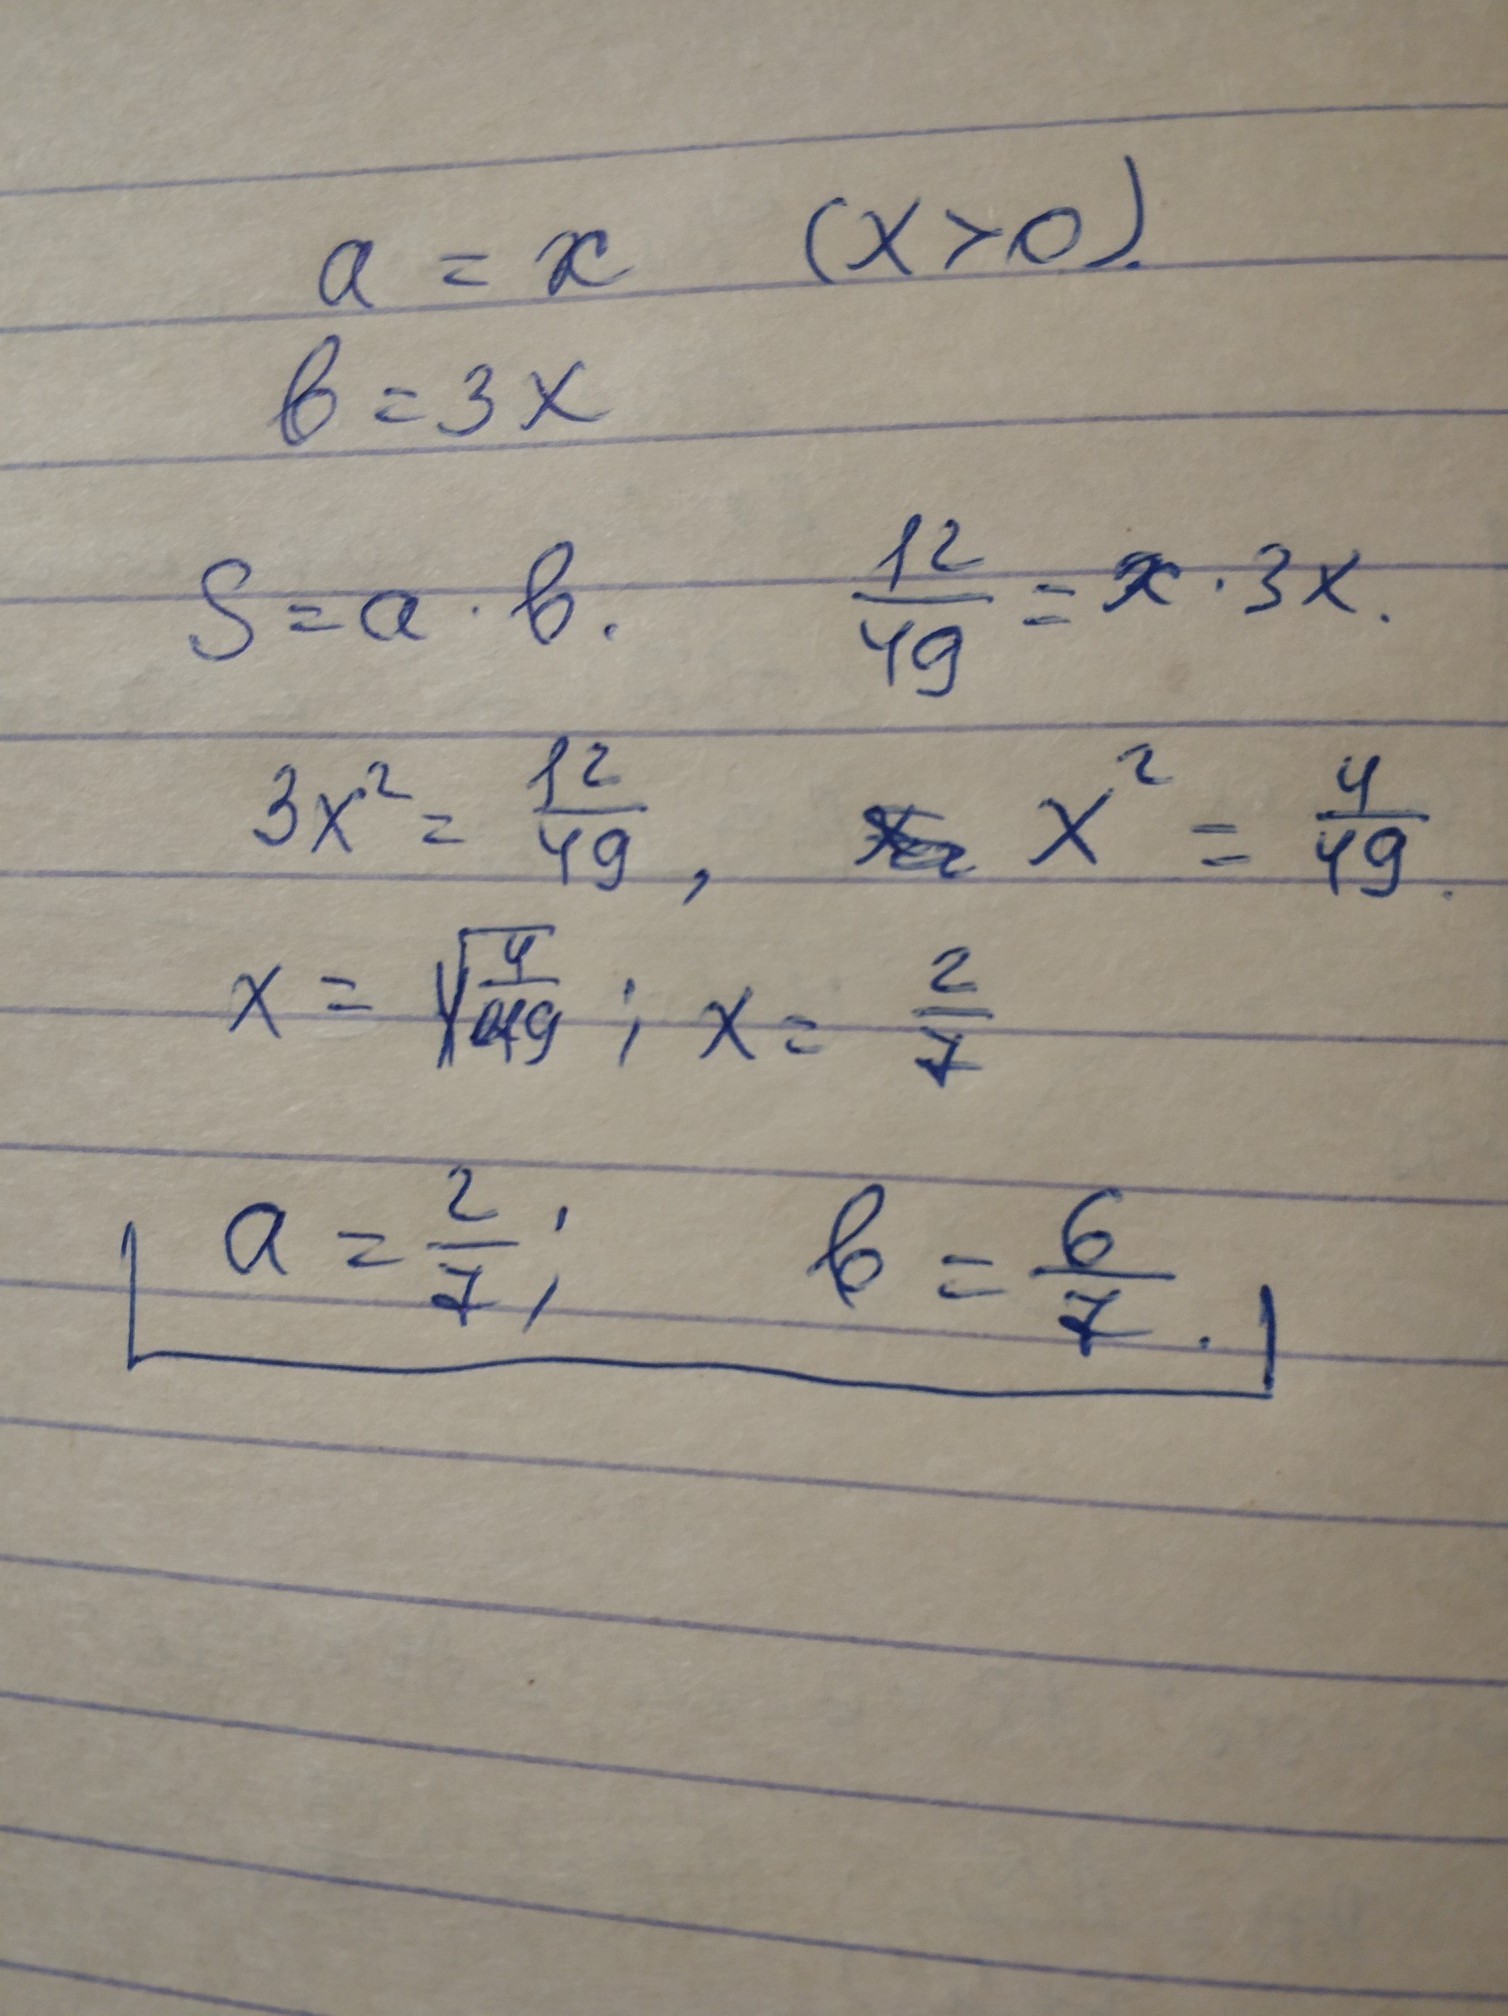 a = x (x>0).
b = 3x
S = a · b. 12/49 = x · 3x.
3x² = 12/49, x² = 4/49.
x = √(4/49); x = 2/7
a = 2/7; b = 6/7.